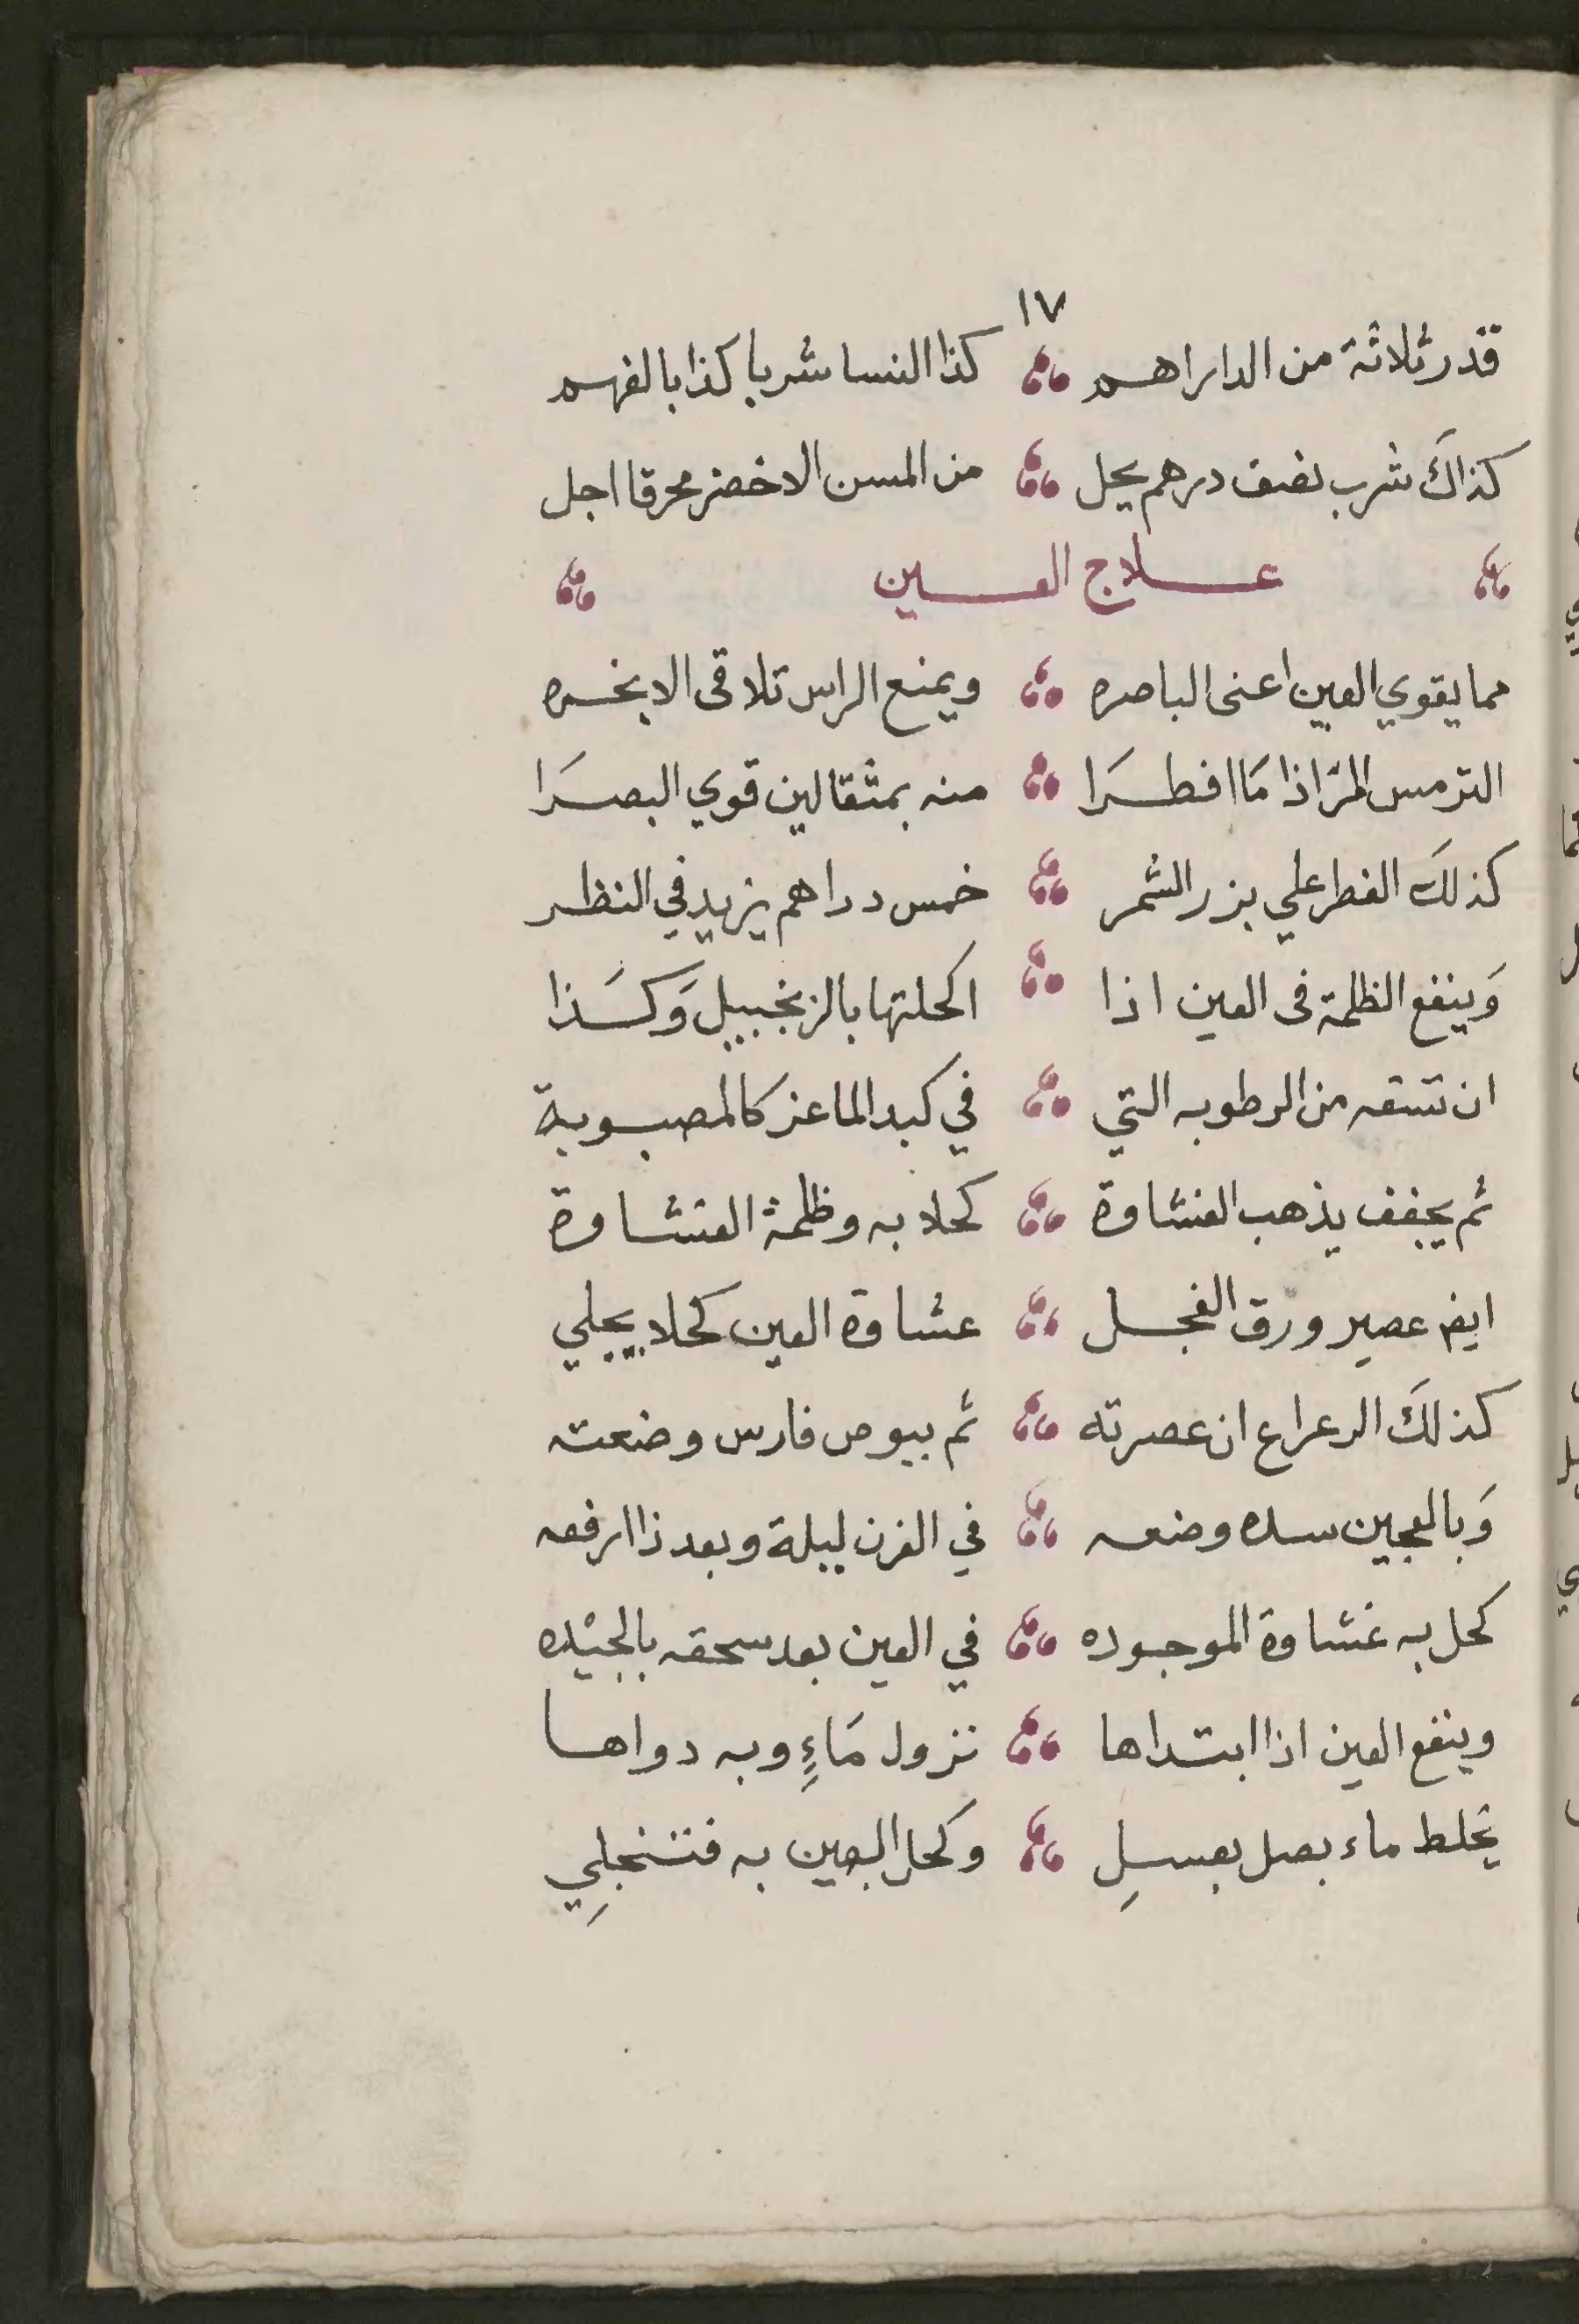 ١٧
قدر ثلاثة من الداراهم كذا النسا شربا كذا بالفهم
كذاكَ شرب نصف درهم يحل من المسن الاخضر محرقا اجل
عــلاج العــين
مما يقوي العين اعنى الباصره ويمنع الراس تلاقى الابخره
الترمس المرّ اذا مَا افطرَا منه بمثقالين قوي البصرَا
كذلكَ الفطر علي بزر الشمر خمس دراهم يزيد في النظر
وَينفع الظلمة فى العين اذا اكحلتها بالزنجبيل وَكَذا
ان تسقه من الرطوبه التي في كبد الماعز كالمصبوبة
ثم يجفف يذهب الغشاوة كحلا به وظلمة الغشاوة
ايض عصير ورق الفجل عشاوة العين كحلا يجلي
كذلكَ الرعراع ان عصرته ثم ببوص فارس وضعته
وَبالعجين سده وضعه في الفرن ليلة وبعد ذا ارفعه
كحل به غشاوة الموجوده في العين بعد سحقه بالجيْده
وينفع العين اذا ابتداها نزول مَاءٍ وبه دواها
يخلط ماء بصل بعسلِ وكحل العين به فتنجلِي